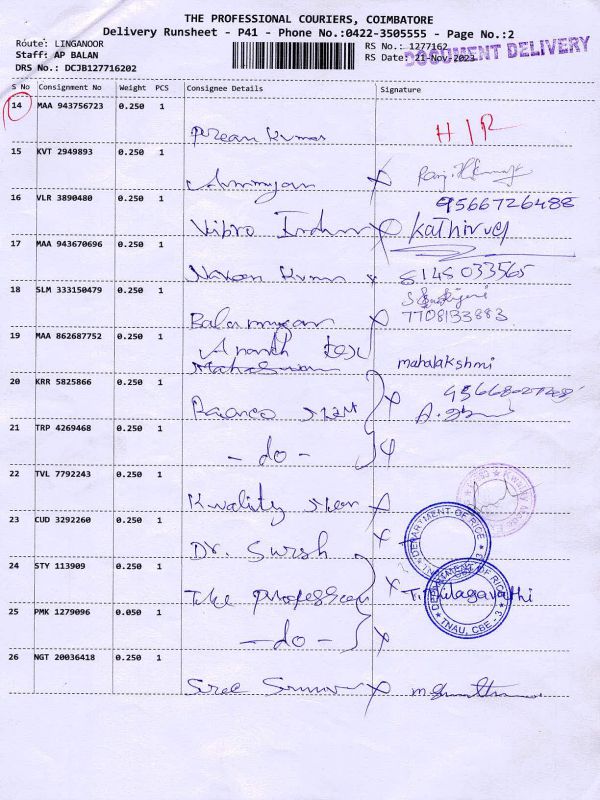 THE PROFESSIONAL COURIERS, COIMBATORE
Delivery Runsheet - P41 - Phone No.:0422-3505555 - Page No.:2
Route: LINGANOOR
RS No.: 1277162
DOCUMENT DELIVERY
Staff: AP BALAN
RS Date: 21-Nov-2023
DRS No.: DCJB127716202
S No Consignment No Weight PCS Consignee Details Signature
14 MAA 943756723 0.250 1
Kumar
15 KVT 2949893 0.250 1
16 VLR 3890480 0.250 1
9566726488
Kathirvel
17 MAA 943670696 0.250 1
Naveen Kumar
18 SLM 333150479 0.250 1
Balamurugan
7708133883
19 MAA 862687752 0.250 1
Ananth Tex
mahalakshmi
20 KRR 5825866 0.250 1
21 TRP 4269468 0.250 1
- do -
22 TVL 7792243 0.250 1
Kwality
23 CUD 3292260 0.250 1
Dr. Sursh
DEPARTMENT OF RICE
24 STY 113909 0.250 1
The
T. Thilagavathi
DEPARTMENT OF RICE
TNAU, CBE - 3
25 PMK 1279096 0.050 1
- do -
26 NGT 20036418 0.250 1
Sree